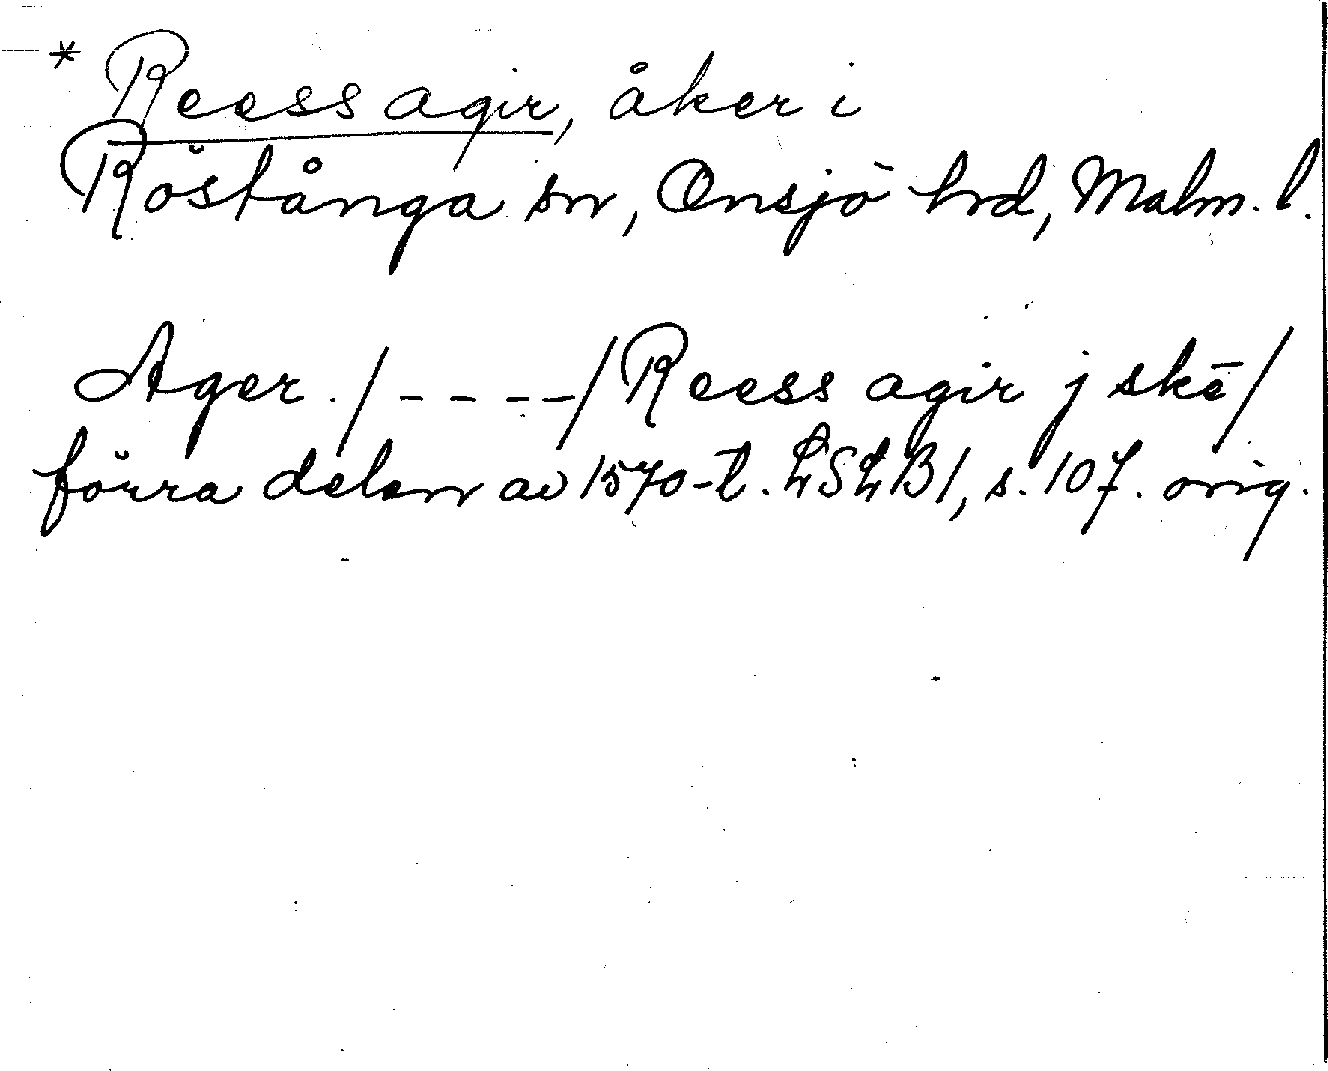 * Reess agir, åker i
Röstånga sn, Onsjö hrd, Malm. l.
Ager. /- - - -/ Reess agir j skē/
förra delen av 1570-t. LSLB1, s. 107. orig.